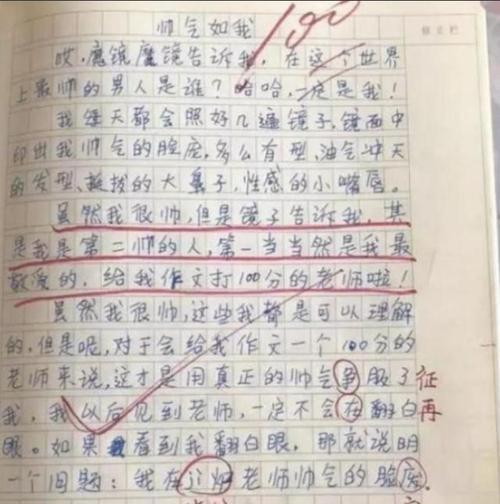 帅气如我
100
哎,魔镜魔镜告诉我,在这个世界
上最帅的男人是谁?哈哈,一定是我!
我每天都会照好几遍镜子,镜面中
印出我帅气的脸庞,多么有型,油气冲天
的发型、挺拔的大鼻子,性感的小嘴唇。
虽然我很帅,但是镜子告诉我,其
是我是第二帅的人,第一当当然是我最
敬爱的,给我作文打100分的老师啦!
虽然我很帅,这些我都是可以理解
的,但是呢,对于会给我作文一个100分的
老师来说,这才是用真正的帅气争服了 征
我,我以后见到老师,一定不会在翻白 再
眼。如果看到我翻白眼,那就说明
一个问题:我在老师帅气的脸庞